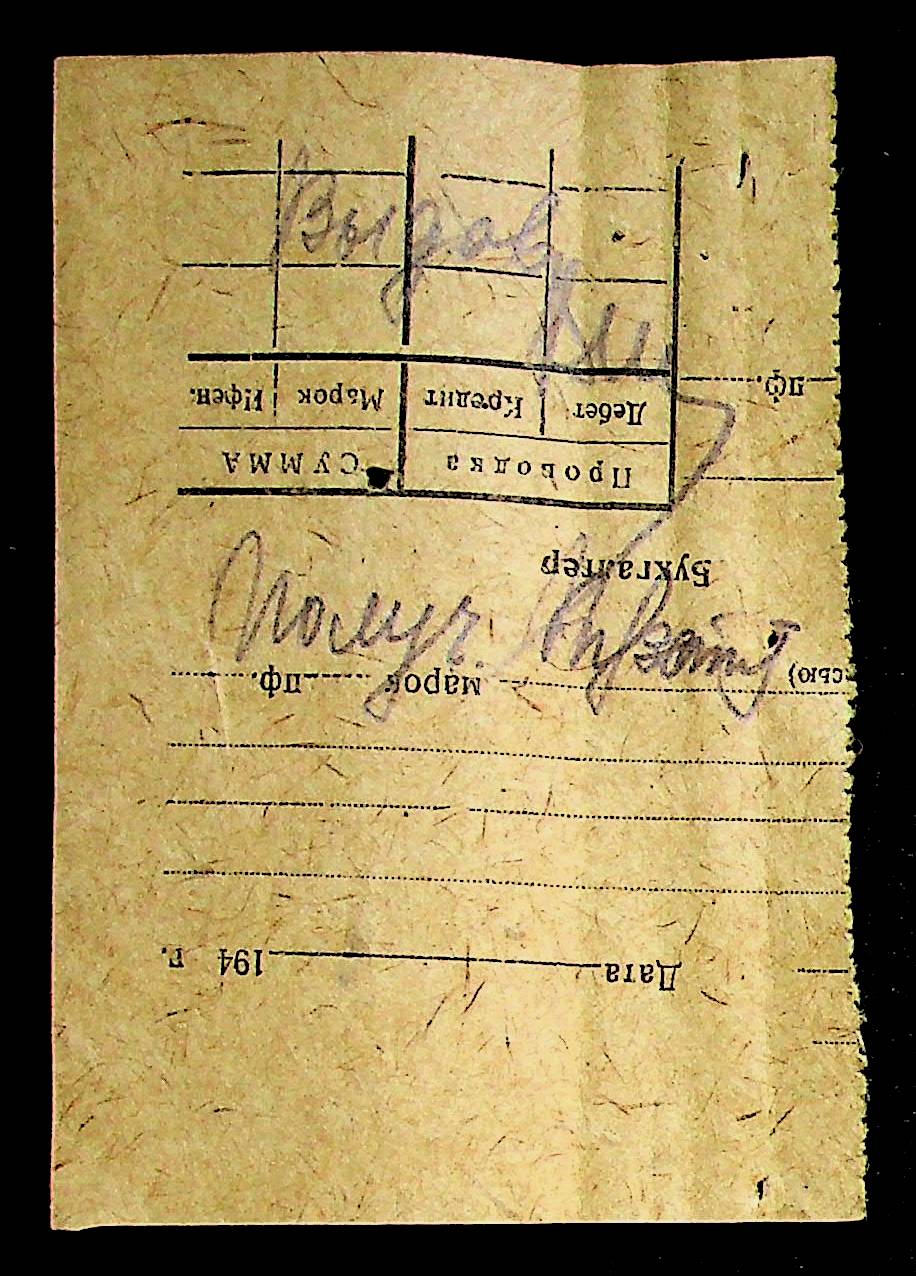 Выдав
Получ.
Дата 194 г.
сью) марок пф.
Бухгалтер
Проводка СУММА
Дебет Кредит Марок Пфен.
пф.